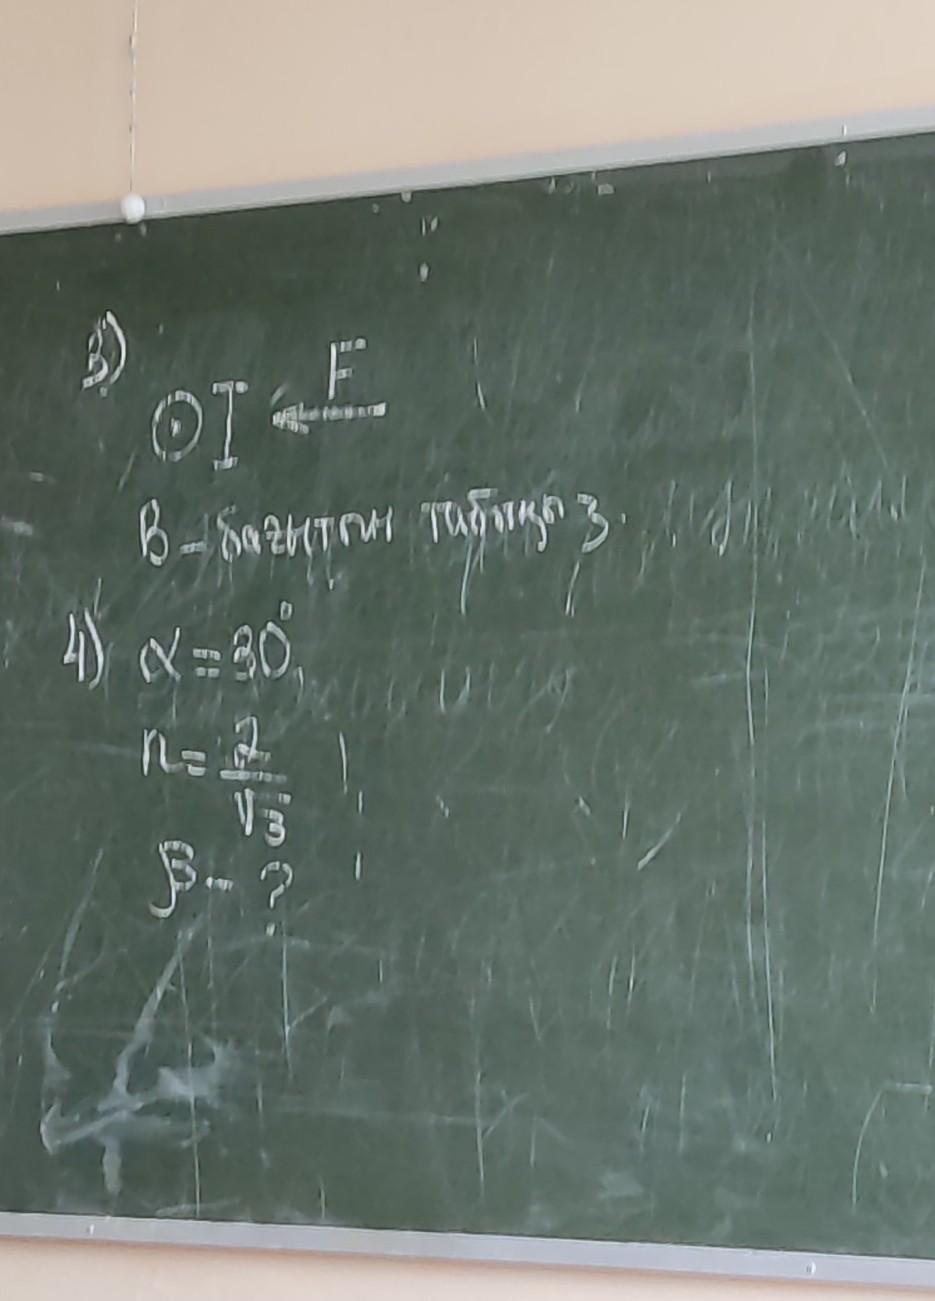 3)
⊙ I F
B - бағытын табыңыз.
4) α = 30°,
n = 2/√3
β - ?